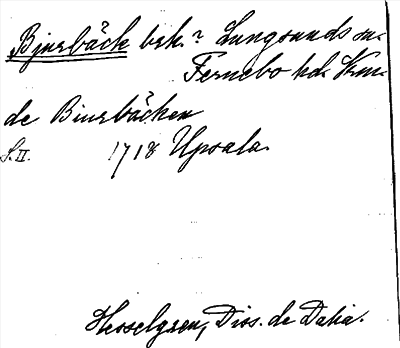 Bjurbäck brk.? Lungsunds sn.
Fernebo hd. Krm.
de Biurbäcken
S. II. 1718 Upsala.
Hesselgren, Diss. de Dalia.